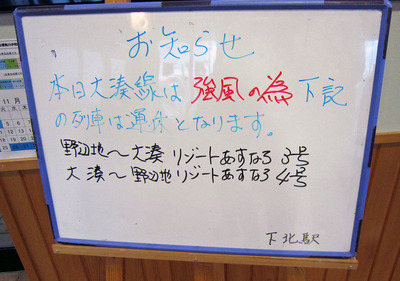 お知らせ
本日大湊線は 強風の為 下記
の列車は運休となります。
野辺地〜大湊 リゾートあすなろ 3号
大湊〜野辺地 リゾートあすなろ 4号
下北駅
11月